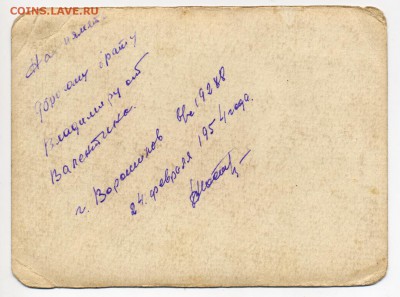 COINS.LAVE.RU
На память
дорогому брату
Владимиру от
Валентина.
г. Ворошилов
24 февраля 1954 года.